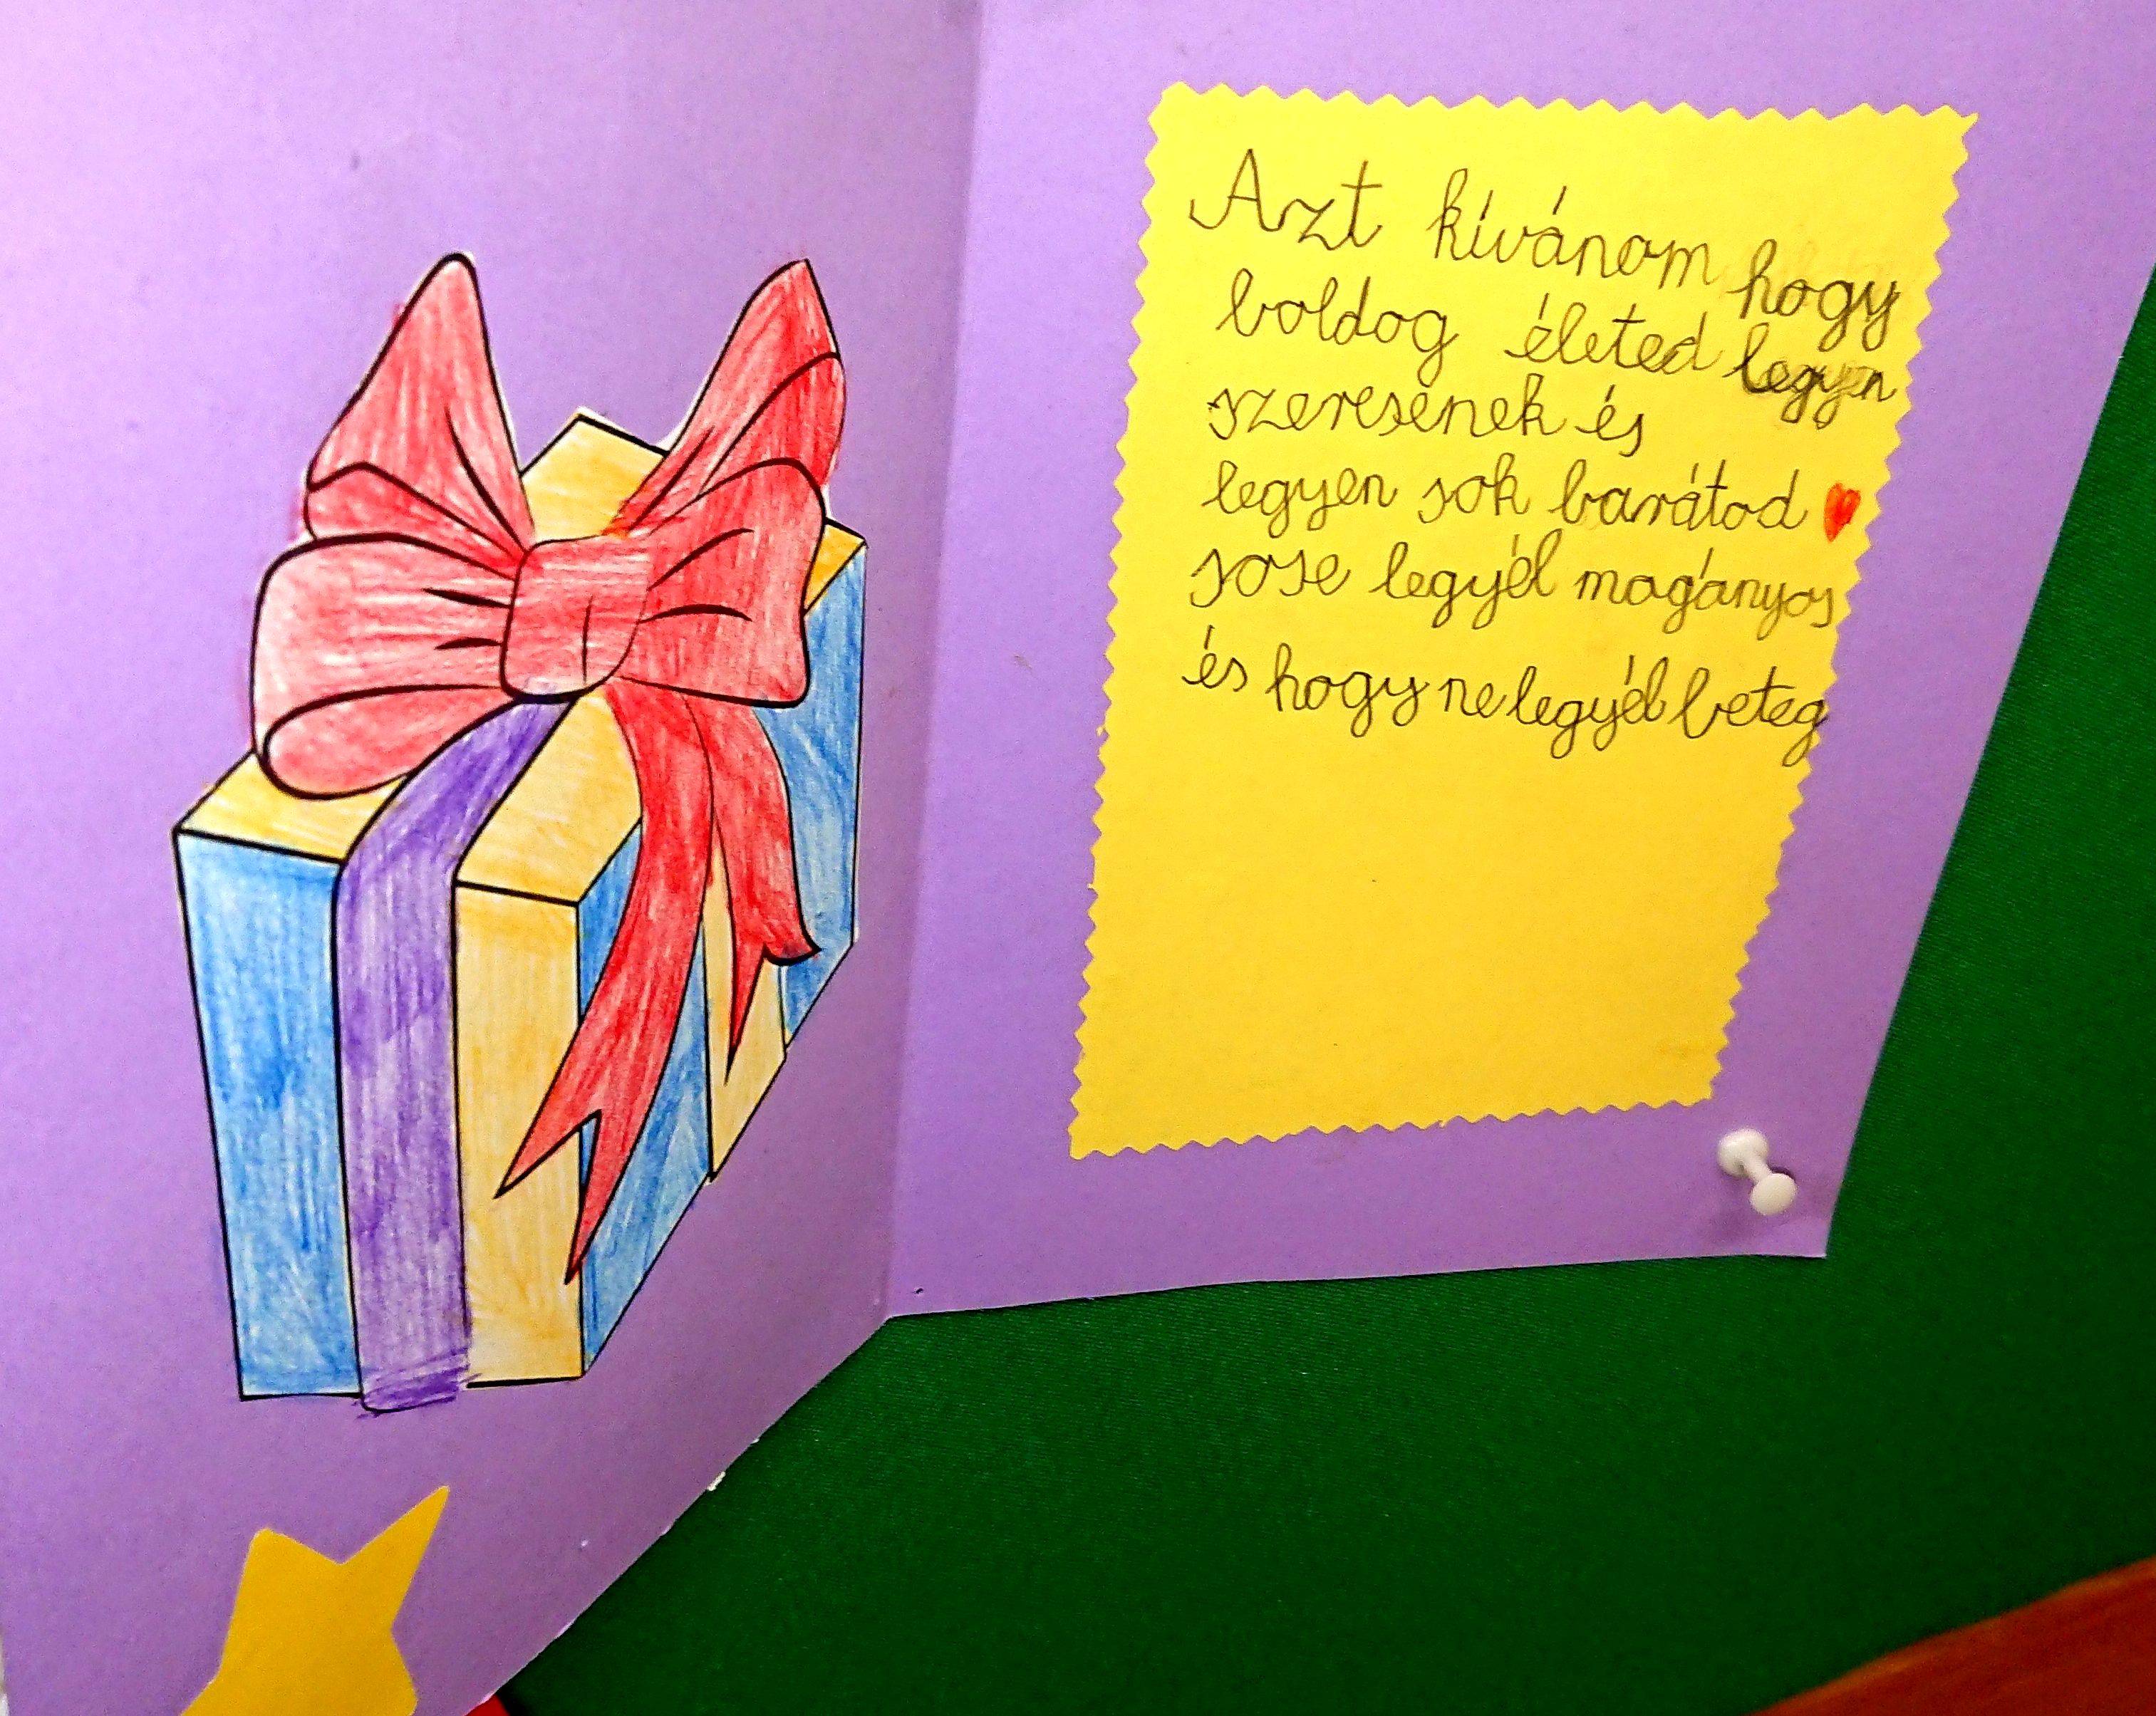 Azt kívánom hogy
boldog életed legyen
szeresenek és
legyen sok barátod
sose legyél magányos
és hogy ne legyél beteg